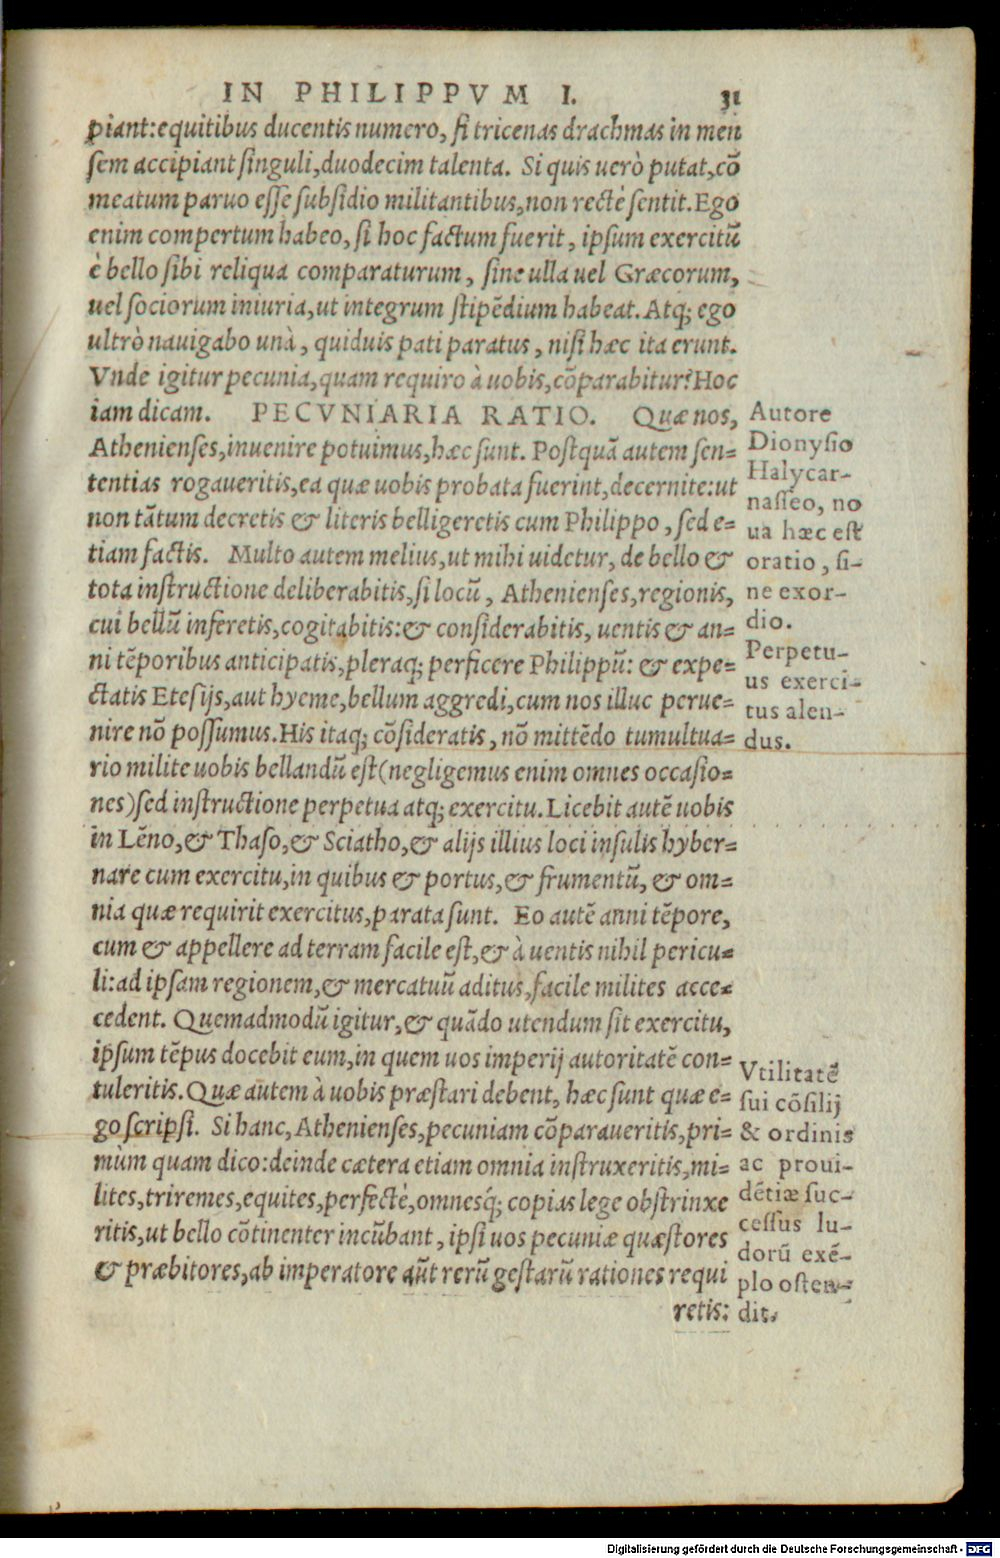 IN PHILIPPVM I. 31
piant: equitibus ducentis numero, si tricenas drachmas in men
sem accipiant singuli, duodecim talenta. Si quis uerò putat, cõ
meatum paruo esse subsidio militantibus, non rectè sentit. Ego
enim compertum habeo, si hoc factum fuerit, ipsum exercitũ
è bello sibi reliqua comparaturum, sine ulla uel Græcorum,
uel sociorum iniuria, ut integrum stipẽdium habeat. Atq; ego
ultrò nauigabo unà, quiduis pati paratus, nisi hæc ita erunt.
Vnde igitur pecunia, quam requiro à uobis, cõparabitur? Hoc
iam dicam. PECVNIARIA RATIO. Quæ nos,
Athenienses, inuenire potuimus, hæc sunt. Postquã autem sen=
tentias rogaueritis, ea quæ uobis probata fuerint, decernite: ut
non tãtum decretis & literis belligeretis cum Philippo, sed e=
tiam factis. Multo autem melius, ut mihi uidetur, de bello &
tota instructione deliberabitis, si locũ, Athenienses, regionis,
cui bellũ inferetis, cogitabitis: & considerabitis, uentis & an=
ni tẽporibus anticipatis, pleraq; perficere Philippũ: & expe=
ctatis Etesijs, aut hyeme, bellum aggredi, cum nos illuc perue=
nire nõ possumus. His itaq; cõsideratis, nõ mittẽdo tumultua=
rio milite uobis bellandũ est (negligemus enim omnes occasio=
nes) sed instructione perpetua atq; exercitu. Licebit autẽ uobis
in Lẽno, & Thaso, & Sciatho, & alijs illius loci insulis hyber=
nare cum exercitu, in quibus & portus, & frumentũ, & om=
nia quæ requirit exercitus, parata sunt. Eo autẽ anni tẽpore,
cum & appellere ad terram facile est, & à uentis nihil pericu=
li: ad ipsam regionem, & mercatuũ aditus, facile milites acce=
cedent. Quemadmodũ igitur, & quãdo utendum sit exercitu,
ipsum tẽpus docebit eum, in quem uos imperij autoritatẽ con=
tuleritis. Quæ autem à uobis præstari debent, hæc sunt quæ e=
go scripsi. Si hanc, Athenienses, pecuniam cõparaueritis, pri=
mùm quam dico: deinde cætera etiam omnia instruxeritis, mi=
lites, triremes, equites, perfectè, omnesq́; copias lege obstrinxe
ritis, ut bello cõtinenter incũbant, ipsi uos pecuniæ quæstores
& præbitores, ab imperatore aũt rerũ gestarũ rationes requi
retis:
Autore
Dionysio
Halycar-
nasseo, no
ua hæc est
oratio, si-
ne exor-
dio.
Perpetu-
us exerci-
tus alen-
dus.
Vtilitatẽ
sui cõsilij
& ordinis
ac proui-
dẽtiæ suc-
cessus lu-
dorũ exẽ-
plo osten-
dit.
Digitalisierung gefördert durch die Deutsche Forschungsgemeinschaft - DFG